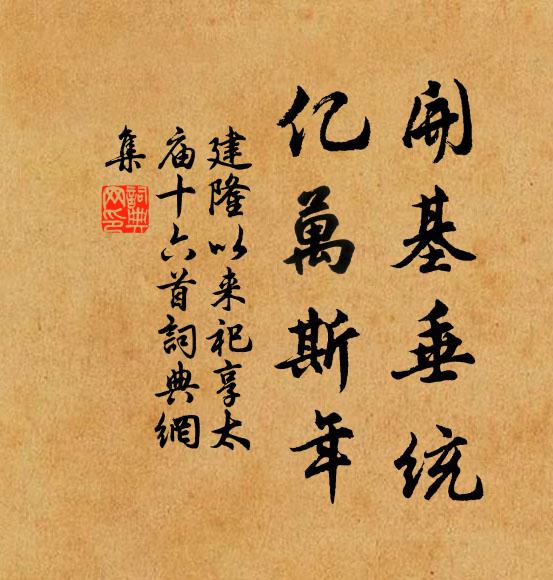 開基垂統
亿萬斯年
建隆以来祀享太
庙十六首詞典網
集
詞典
网印